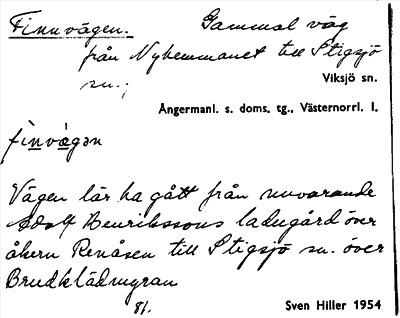 Finnvägen. Gammal väg
från Nyhemmanet till Stigsjö
sn.;
Viksjö sn.
Ångermanl. s. doms. tg., Västernorrl. l.
finvägən
Vägen lär ha gått från nuvarande
Adolf Henrikssons ladugård över
åkern Renåsen till Stigsjö sn. över
Brudklädnugran
81.
Sven Hiller 1954